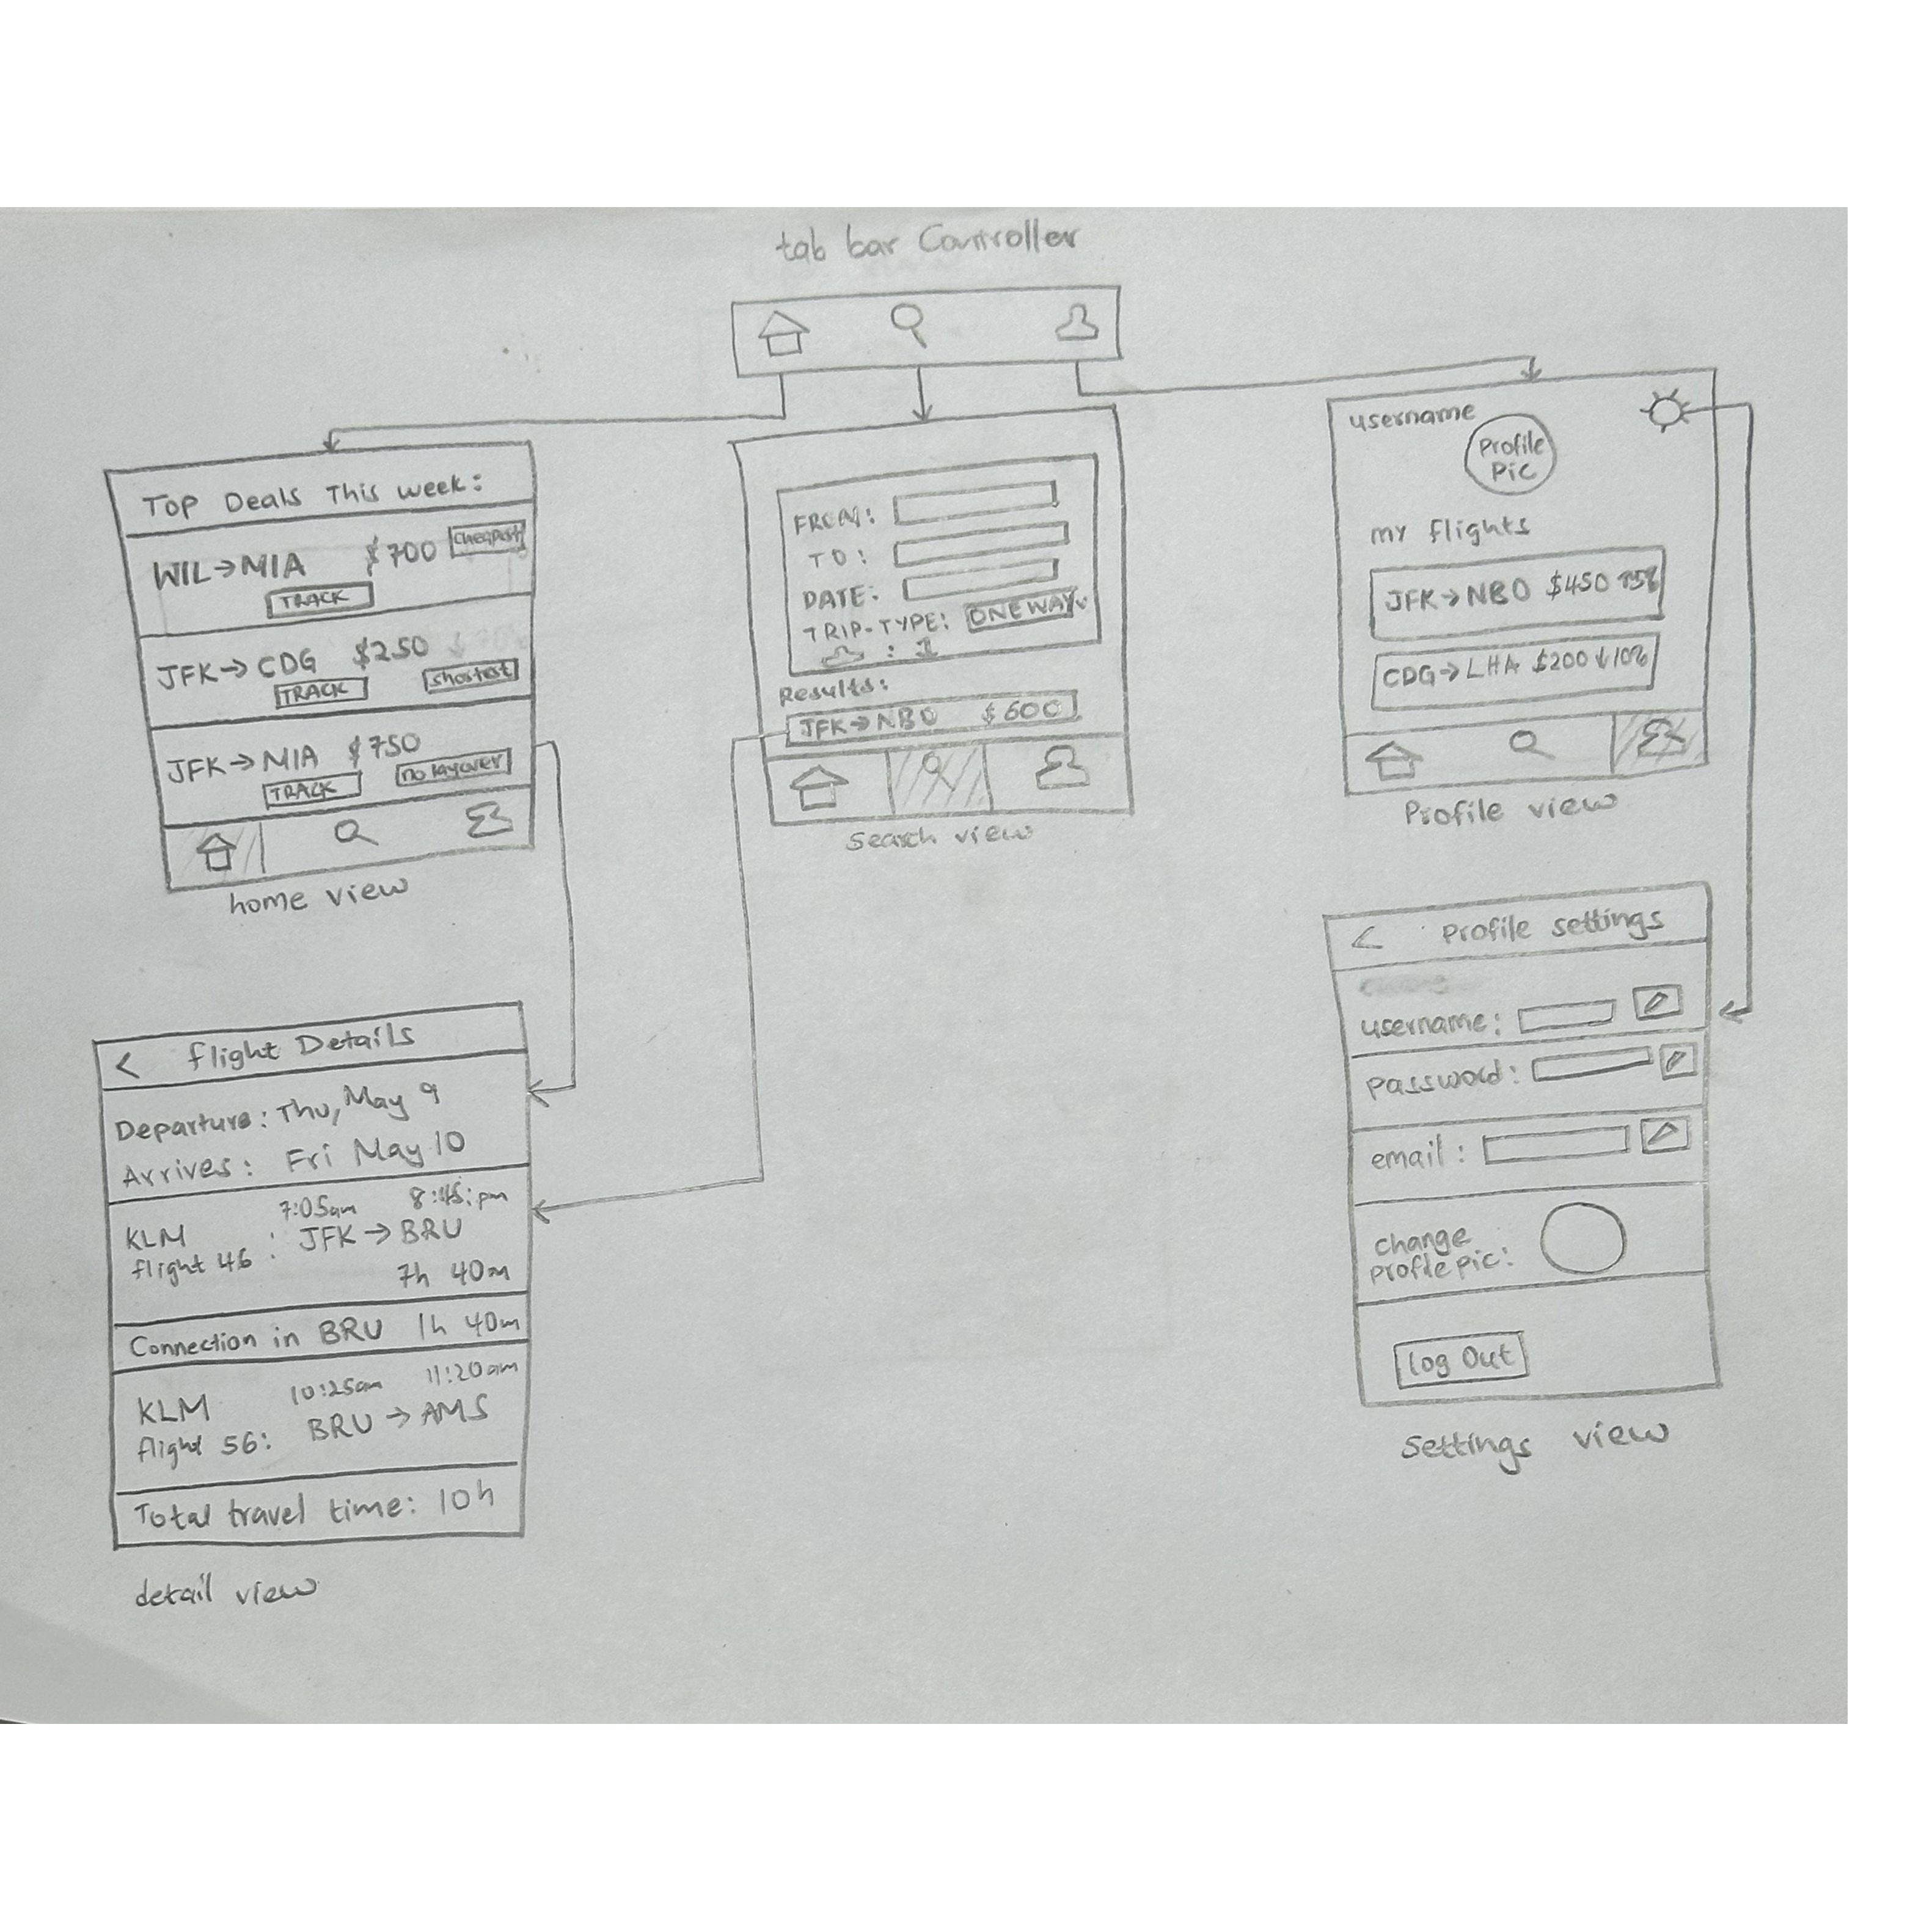 tab bar Controller
Top Deals This week:
WIL→MIA $700 cheapest
TRACK
JFK→CDG $250
TRACK shortest
JFK→MIA $750
TRACK no layover
home view
FROM:
TO:
DATE:
TRIP-TYPE: ONEWAY
: 1
Results:
JFK→NBO $600
search view
username
Profile
Pic
my flights
JFK→NBO $450 ↑5%
CDG→LHA $200↓10%
Profile view
< flight Details
Departure: Thu, May 9
Arrives: Fri May 10
7:05am 8:45:pm
KLM
flight 46 : JFK→BRU
7h 40m
Connection in BRU 1h 40m
10:25am 11:20am
KLM
flight 56: BRU→AMS
Total travel time: 10h
detail view
< Profile settings
username:
password:
email:
change
profile pic:
log Out
settings view